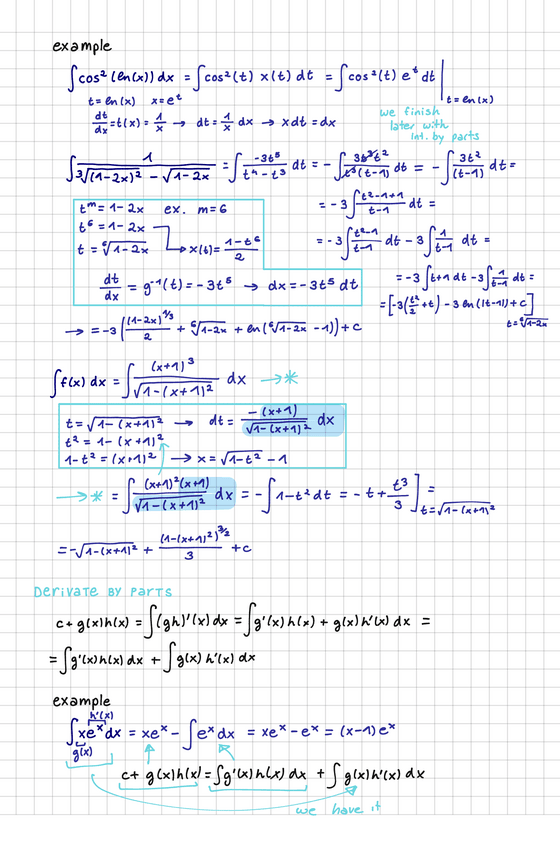 example
∫cos²(ln(x)) dx = ∫cos²(t) x(t) dt = ∫cos²(t) eᵗ dt |t=ln(x)
t=ln(x) x=eᵗ
dt/dx = t(x) = 1/x → dt = 1/x dx → xdt = dx
we finish
later with
int. by parts
∫ 1/(³√(1-2x)² - √1-2x) = ∫ -3t⁵/(t⁴-t³) dt = - ∫ 3t³t²/(t³(t-1)) dt = - ∫ 3t²/(t-1) dt =
tᵐ = 1-2x ex. m=6
t⁶ = 1-2x
t = ⁶√1-2x → x(t) = (1-t⁶)/2
dt/dx = g⁻¹(t) = -3t⁵ → dx = -3t⁵ dt
= -3 ∫ (t²-1+1)/(t-1) dt =
= -3 ∫ (t²-1)/(t-1) dt - 3 ∫ 1/(t-1) dt =
= -3 ∫ t+1 dt - 3 ∫ 1/(t-1) dt =
= [-3(t²/2 + t) - 3 ln(|t-1|) + c] t=⁶√1-2x
→ = -3 ((1-2x)^(1/3)/2 + ⁶√1-2x + ln(⁶√1-2x - 1)) + c
∫f(x) dx = ∫ (x+1)³/√(1-(x+1)²) dx → *
t = √(1-(x+1)²) → dt = -(x+1)/√(1-(x+1)²) dx
t² = 1-(x+1)²
1-t² = (x+1)² → x = √(1-t²) - 1
→ * = ∫ (x+1)²(x+1)/√(1-(x+1)²) dx = - ∫ 1-t² dt = -t + t³/3 ] t=√(1-(x+1)²) =
= -√(1-(x+1)²) + (1-(x+1)²)^(3/2)/3 + c
DERIVATE BY PARTS
c + g(x)h(x) = ∫(gh)'(x) dx = ∫g'(x)h(x) + g(x)h'(x) dx =
= ∫g'(x)h(x) dx + ∫g(x) h'(x) dx
example
h'(x)
∫xeˣdx = xeˣ - ∫eˣdx = xeˣ - eˣ = (x-1)eˣ
g(x)
c + g(x)h(x) = ∫g'(x)h(x) dx + ∫g(x)h'(x) dx
we have it